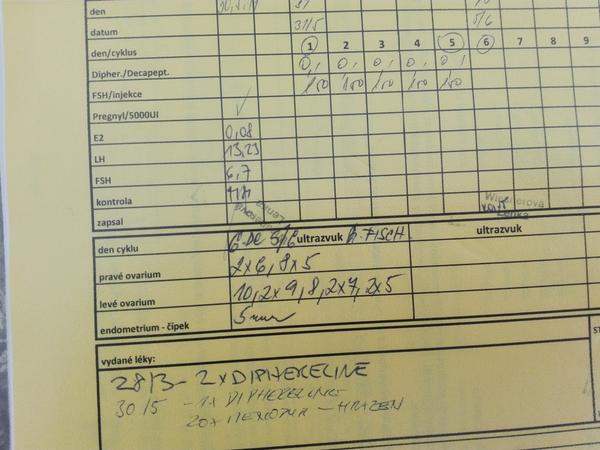 den
datum 31/5 5/6
den/cyklus 1 2 3 4 5 6 7 8 9
Dipher./Decapept. 0,1 0,1 0,1 0,1 0,1
FSH/injekce 150 150 150 150 150
Pregnyl/5000UI
E2 0,08
LH 13,23
FSH 6,7
kontrola
zapsal
den cyklu 6.DC 5/6 ultrazvuk ultrazvuk
pravé ovarium 2x6, 8x5
levé ovarium 10, 2x9, 8, 2x7, 2x5
endometrium - čípek 5mm
vydané léky:
28/3 - 2x DIPHERELINE
30/5 - 1x DIPHERELINE
20x - HRAZEN